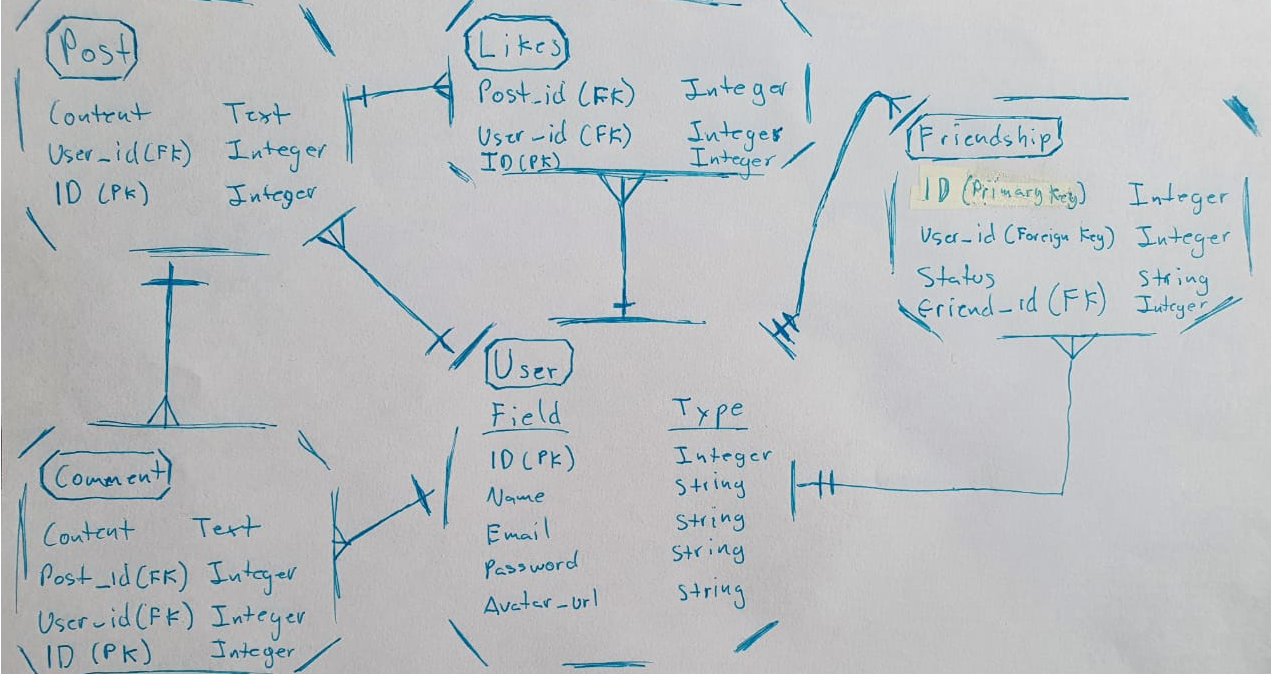 Post
Content Text
User_id(FK) Integer
ID (PK) Integer
Likes
Post_id (FK) Integer
User_id (FK) Integer
ID(PK) Integer
Friendship
ID (Primary Key) Integer
User_id (Foreign Key) Integer
Status String
Friend_id (FK) Integer
User
Field Type
ID (PK) Integer
Name String
Email String
Password String
Avatar_url String
Comment
Content Text
Post_id(FK) Integer
User_id(FK) Integer
ID (PK) Integer